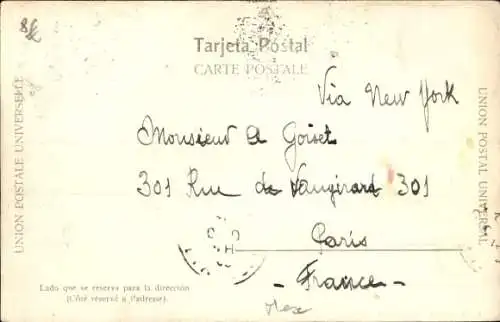 Tarjeta Postal
CARTE POSTALE
UNION POSTALE UNIVERSELLE
UNION POSTAL UNIVERSAL
Via New York
Monsieur A Goiset
301 Rue de Vaugirard 301
Paris
- France -
Lado que se reserva para la dirección
(Côté réservé a l'adresse).
Mex